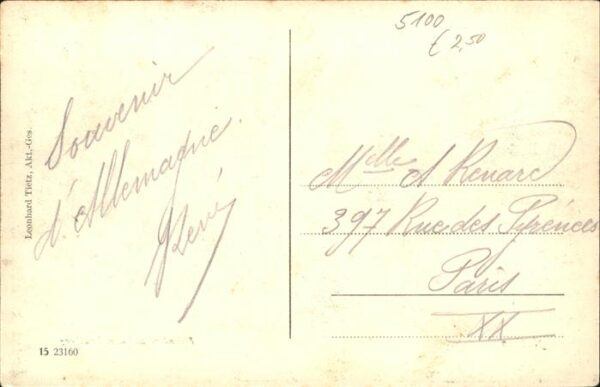 5100
£ 2,50
Souvenir
d'Allemagne.
René
Leonhard Tietz, Akt.-Ges.
15 23160
Mlle A Renard
397 Rue des Pyrénées
Paris
XX